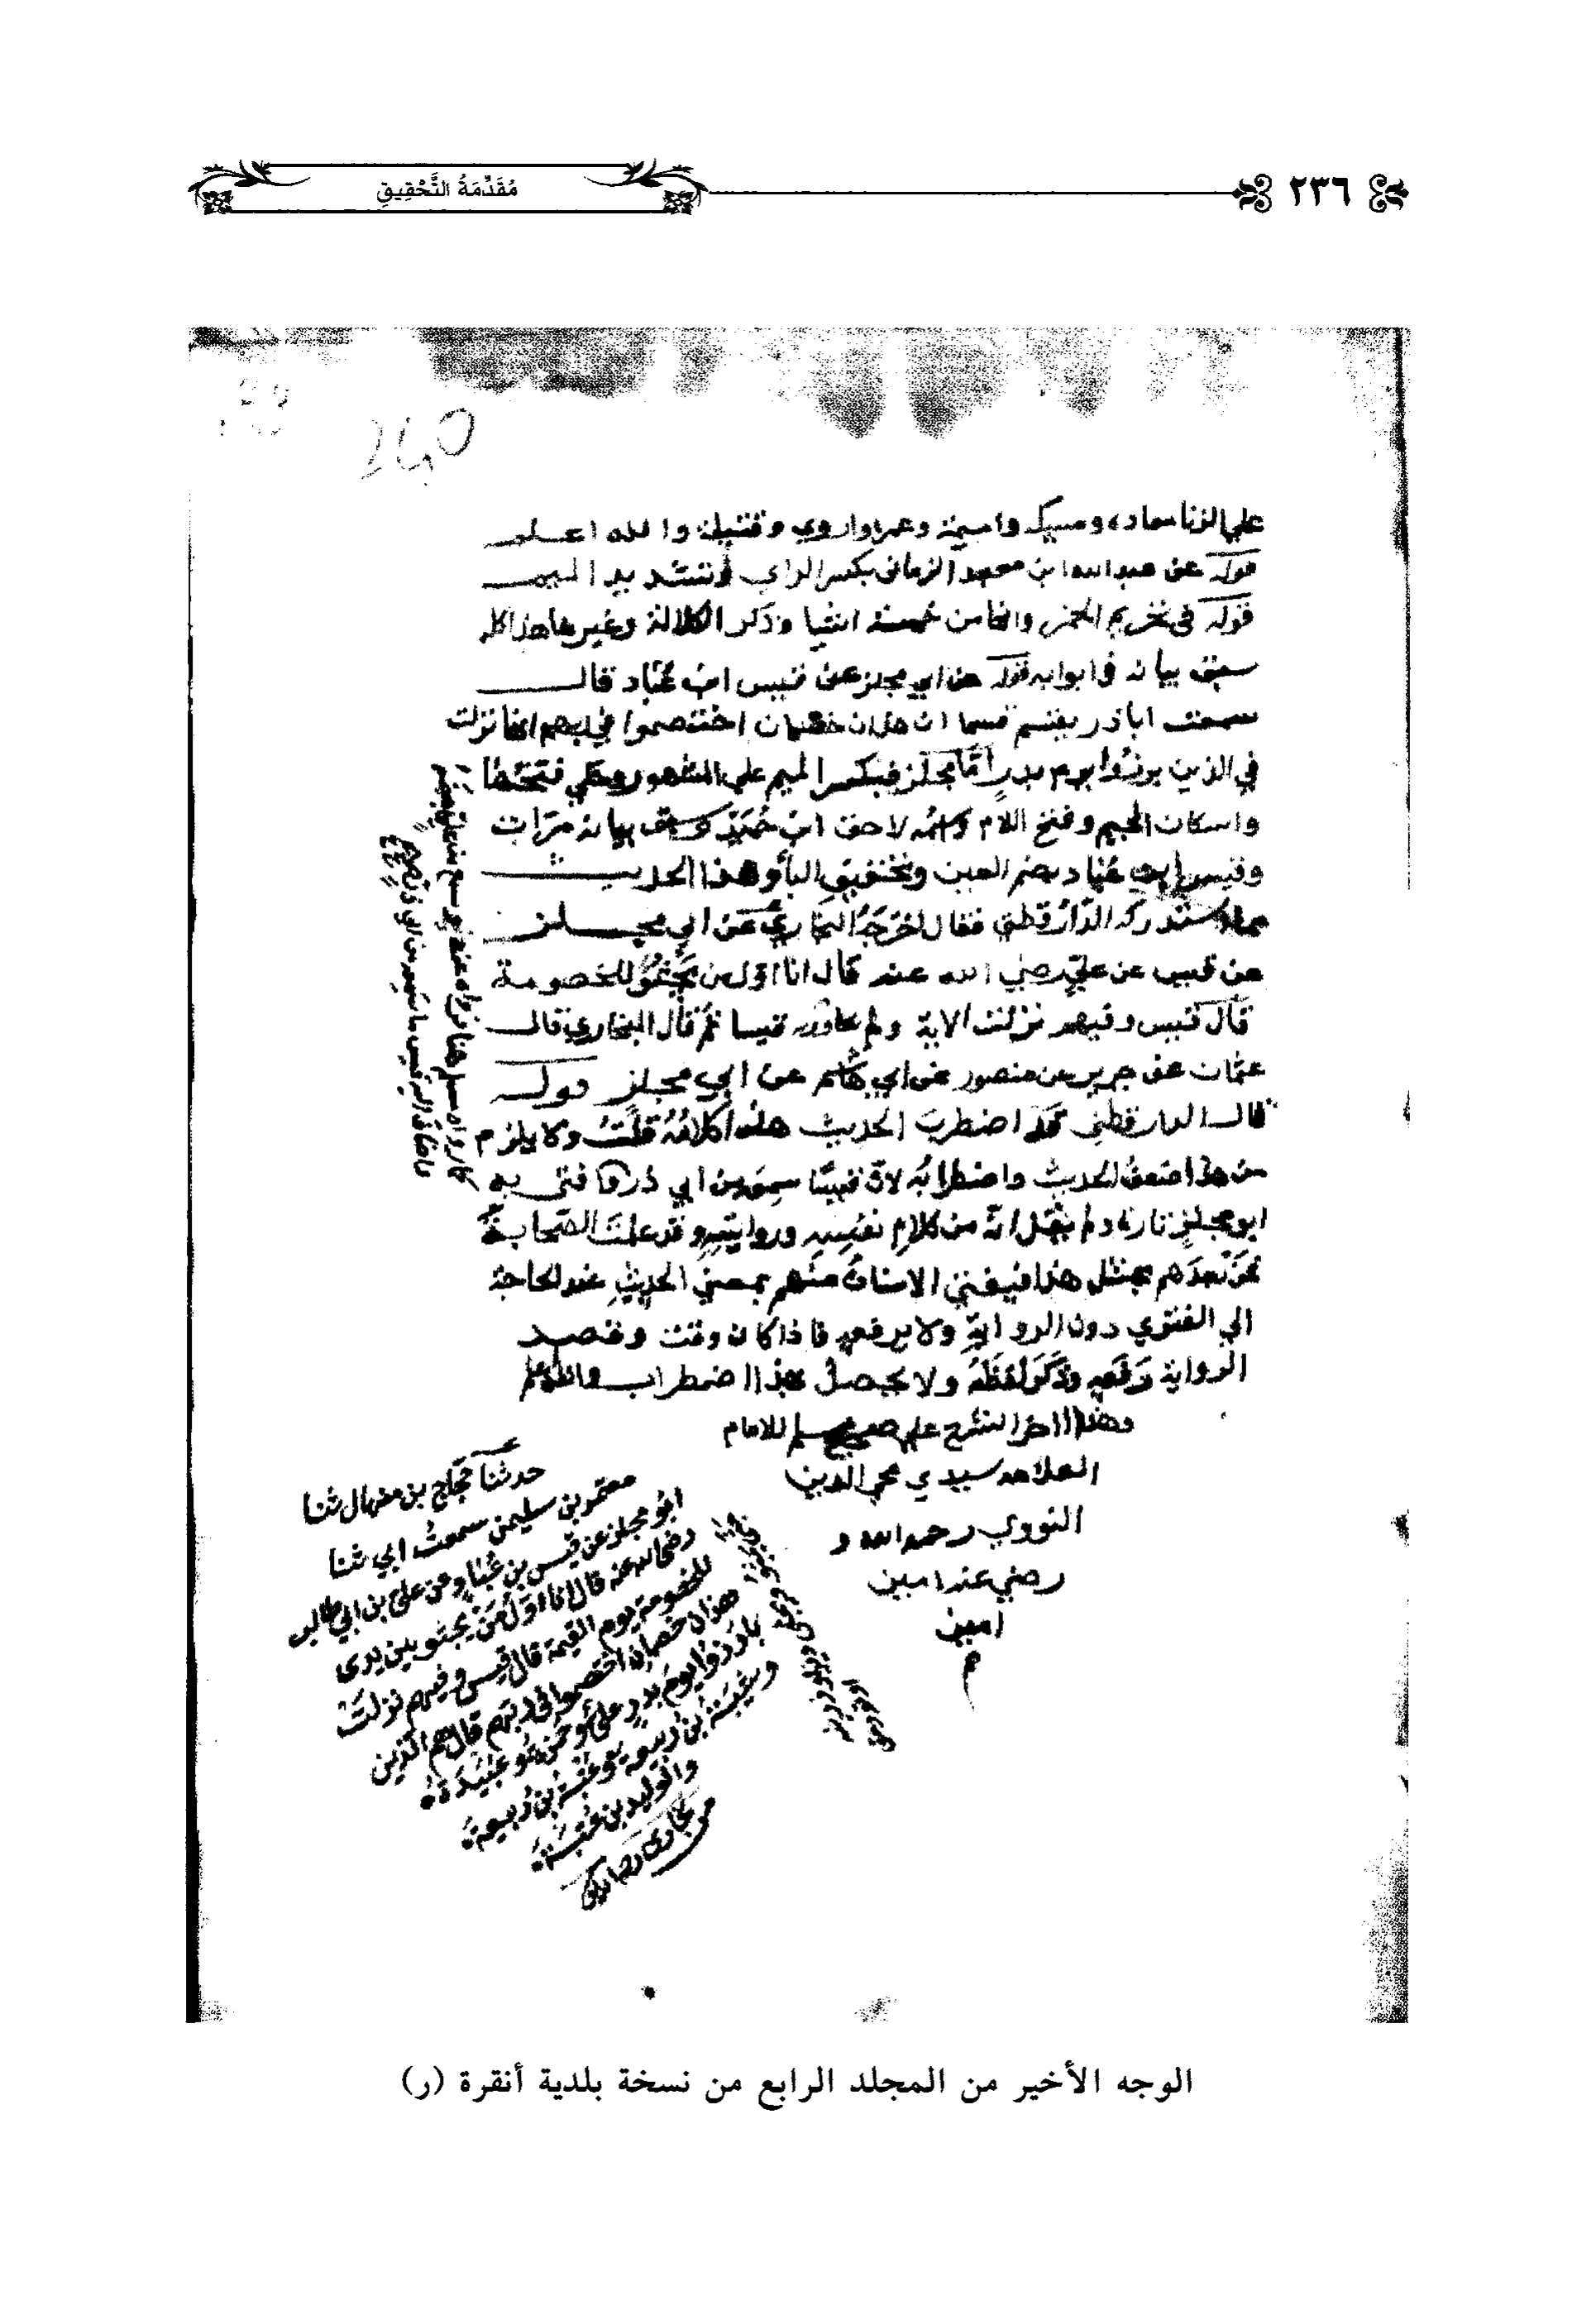 ٢٣٦
مُقَدِّمَةُ التَّحْقِيقِ
علي الزنا معاده ومسيكه واميمة وعمره واروي وقتيلة والله اعلم
قوله عن عبد الله ابن محمد الزماني بكسر الزاي وتشديد الميم
قوله في تحريم الخمر وانها من خمسة اشيا وذكر الكلالة وغيرها هذا كله
سبق بيانه في ابوابه قوله عن ابي مجلز عن قيس ابن عُبَاد قال
سمعت اباذر يقسم قسما ان هذان خصمان اختصموا في ربهم انها نزلت
في الذين برزوا يوم بدر امَّا مجلز فبكسر الميم علي المشهور وحكي فتحها
واسكان الجيم وفتح اللام واسمُه لاحق ابن حُمَيْدٍ وسبق بيانه مرّات
وقيس ابن عُبَاد بضم العين وتخفيف البا وهذا الحديث
مما استدركه الدَّارقطني فقال اخرَجَهُ البخاريُّ عن ابي مجلز
عن قيس عن عليّ رضي الله عنه قال انا اوّل من يَجثُو للخصومة
قال قيس وفيهم نزلت الاية ولم يجاوز به قيسا ثم قال البخاري قال
عثمان عن جرير عن منصور عن ابي هاشم عن ابي مجلز قوله
قال الدارقطني فقد اضطربَ الحديث هذا كلامُهُ قلتُ ولا يلزم
من هذا ضعفُ الحديث واضطرابُه لانّ قيسًا سمعه من ابي ذر وافتي به
ابو مجلزٍ تارة ولم يقل انّه من كلامِ نفسِه وروايته وقد عملت الصّحابةُ
بمثل هذا فيفتي الانسانُ منهم بمعني الحديثِ عند الحاجة
الي الفتوي دون الروايةِ ولا يرفعه فاذا كان وقت وقصد
الرواية رَفَعَه وذَكَرَ لفظَهُ ولا يحصلُ بهذا اضطراب والله اعلم
وهذا اخر الشرح علي صحيح مسلم للامام
العلامه سيدي محي الدين
النووي رحمه الله و
رضي عنه امين
امين
م
حدثنا حجّاج بن منهال ثنا
معتمر بن سليمن سمعتُ ابي ثنا
ابُو مجلز عن قيس بن عُبَادٍ عن عليّ بن ابي طالب
رضي الله عنه قال انا اوّل مَنْ يجثو بين يدي
للخصومة يوم القيمة قال قيس وفيهم نزلَتْ
هذان خصمان اختصموا في ربّهم قال هم الذين
بارَزُوا يومَ بدرٍ عليٌّ وحمزة وعُبَيْدَة
وشيبَة بن ربيعة وعُتْبة بن ربيعة
والوليد بن عُتْبَة
الوجه الأخير من المجلد الرابع من نسخة بلدية أنقرة (ر)